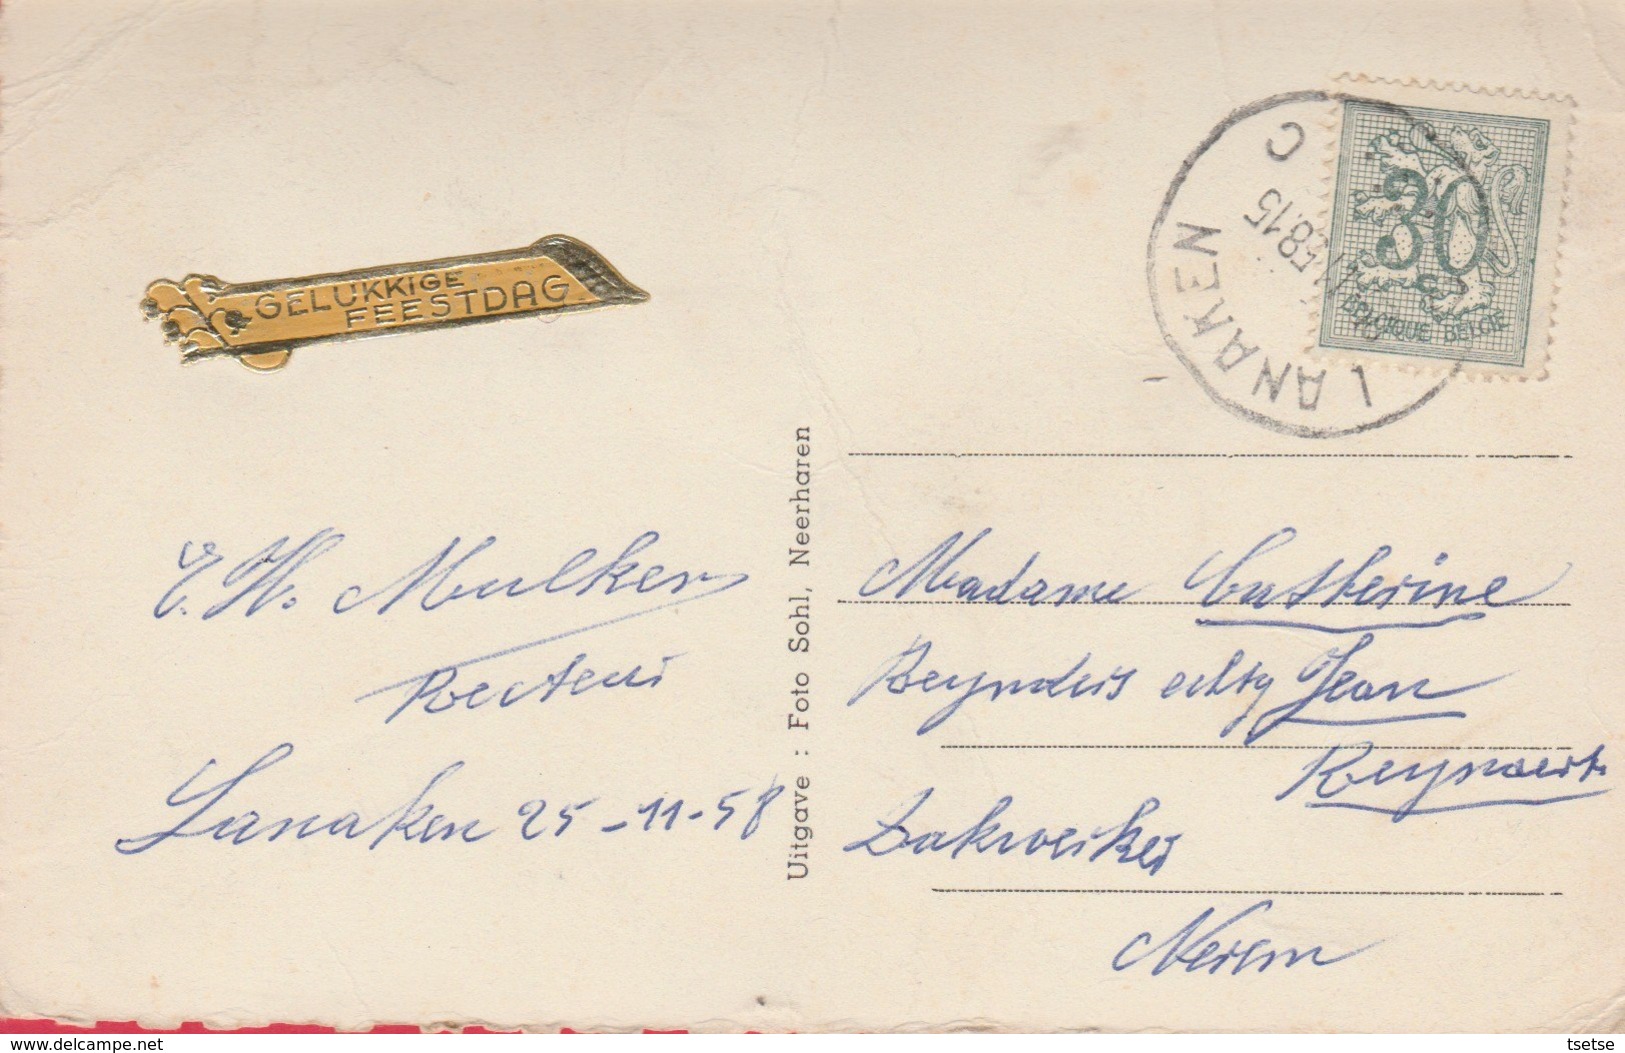 GELUKKIGE
FEESTDAG
E. H. Mulkers
Lanaken 25-11-58
Uitgave : Foto Sohl, Neerharen
LANAKEN
C
58.15
30
BELGIQUE BELGIE
Madame Catherine
Reynders echtg Jean
Reynaerts
Dakwerker
Nerem
www.delcampe.net
tsetse